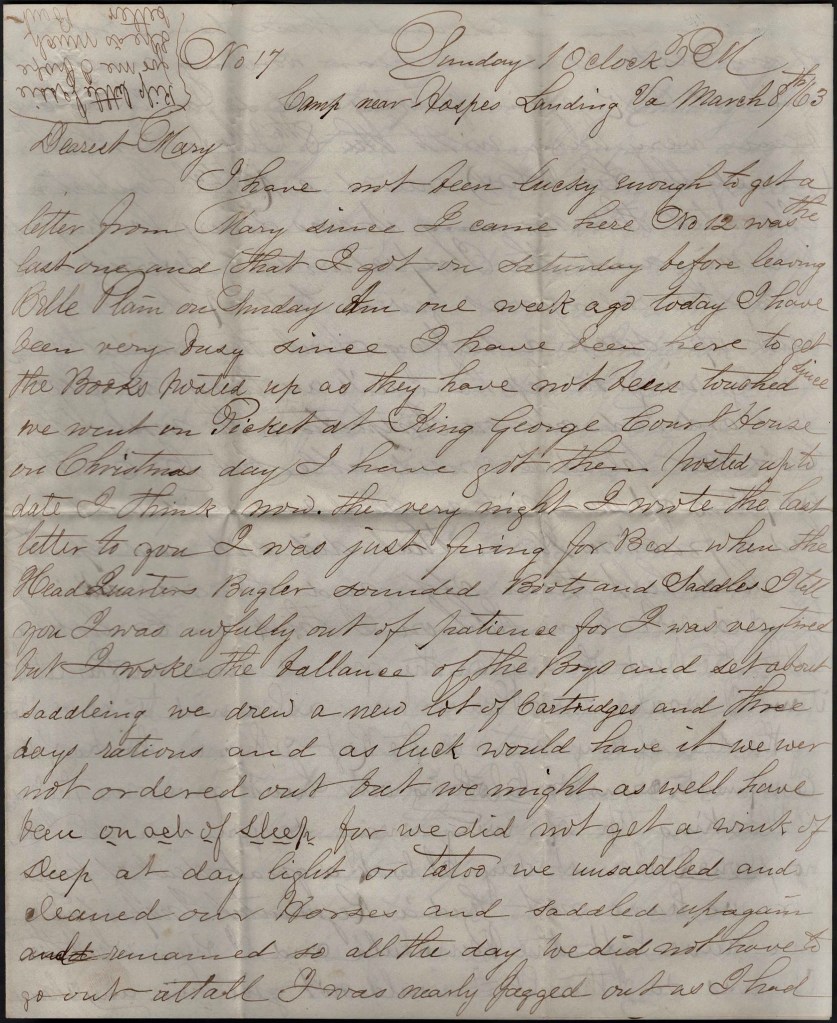 Kiss little Lossie
for me I hope
she is much
better Pum
No 17 Sunday 1 Oclock PM
Camp near Hospes Landing Va March 8th/63
Dearest Mary
I have not been lucky enough to get a
letter from Mary since I came here No 12 was the
last one and that I got on saturday before leaving
Bille Plain on Sunday Am one week ago today I have
been very busy since I have been here to get
the Books posted up as they have not been touched since
we went on Picket at King George Court House
on Christmas day I have got them posted up to
date I think now. the very night I wrote the last
letter to you I was just fixing for Bed when the
Head Quarters Bugler sounded Boots and Saddles I tell
you I was awfully out of patience for I was very tired
but I woke the ballance of the Boys and set about
saddleing we drew a new lot of Cartridges and three
days rations and as luck would have it we wer
not ordered out but we might as well have
been on acb of sleep for we did not get a wink of
sleep at day light or tatoo we unsaddled and
cleaned our Horses and saddled up again
and remained so all the day we did not have to
go out attall I was nearly fagged out as I had